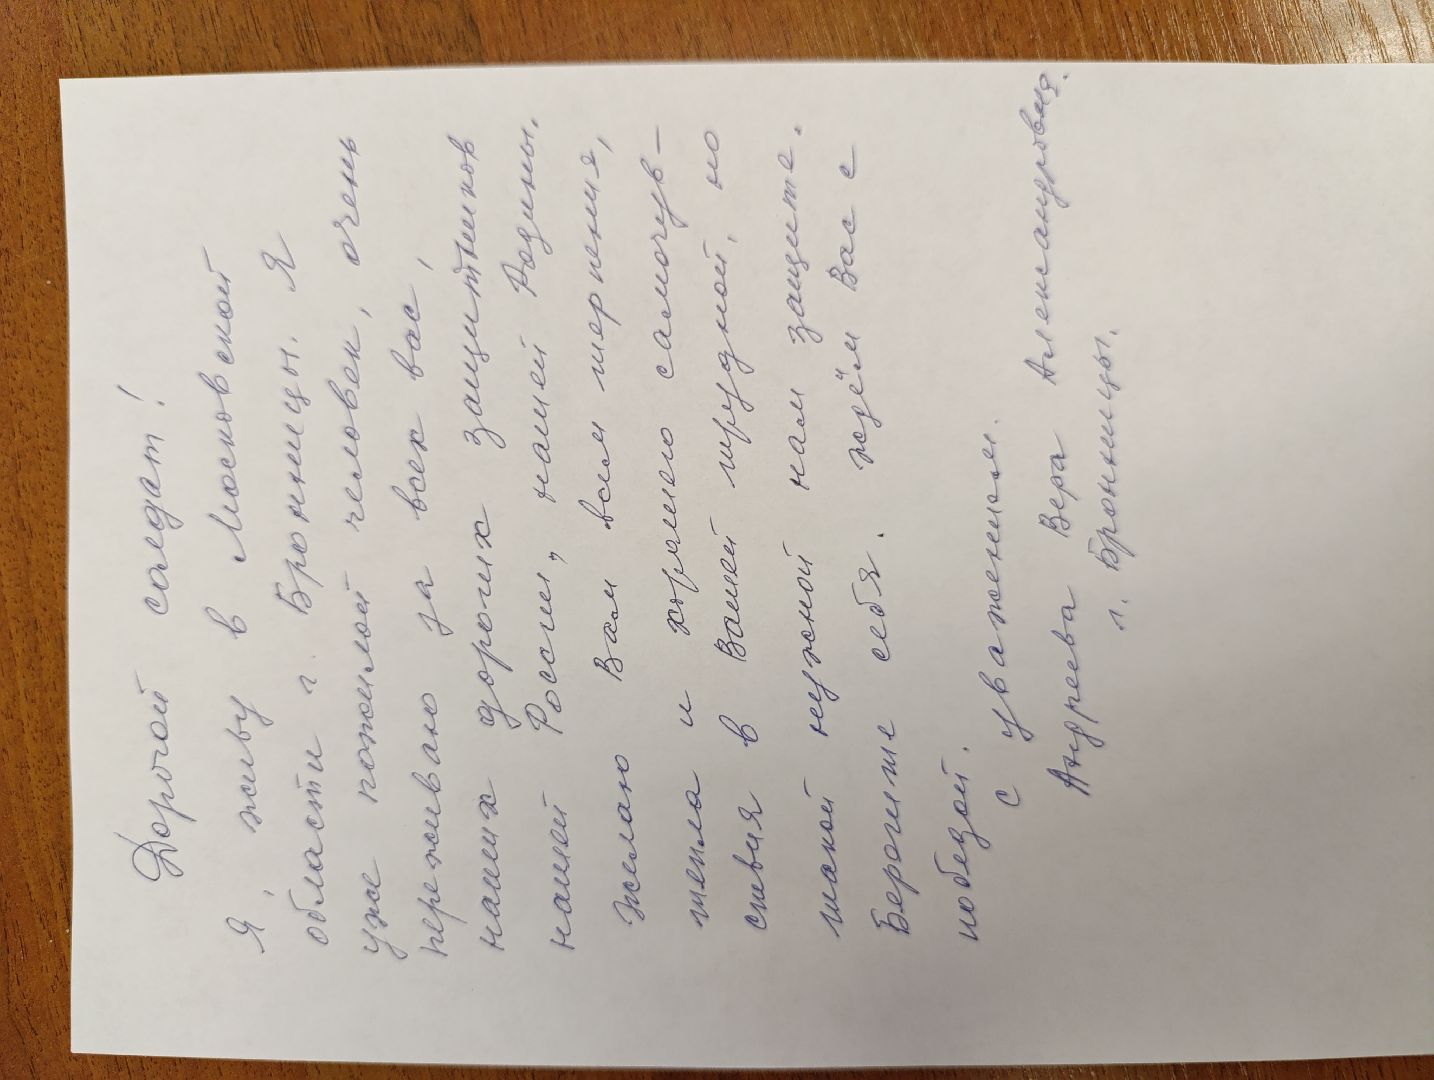 Дорогой солдат!
Я, живу в Московской
области г. Бронницы. Я
уже пожилой человек, очень
переживаю за всех вас,
наших дорогих защитников
нашей России, нашей Родины.
Желаю Вам всем терпения,
тепла и хорошего самочув-
ствия в Вашей трудной, но
такой нужной нам защите.
Берегите себя. Ждём Вас с
победой.
С уважением.
Андреева Вера Александровна.
г. Бронницы.